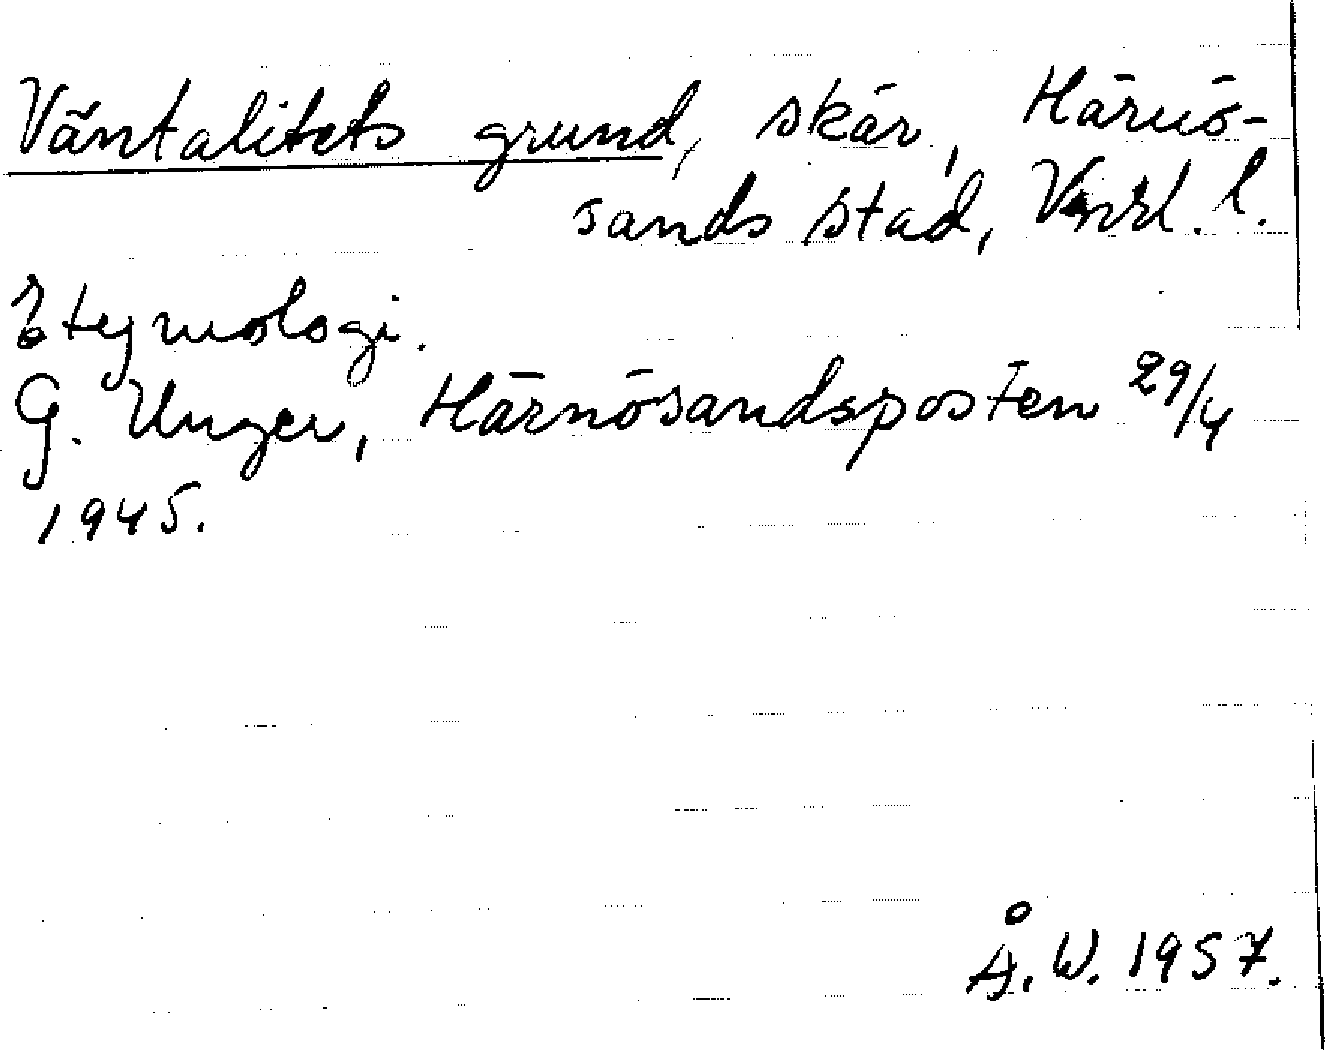 Väntalitets grund, skär, Härnö-
sands stad, Vnrl. l.
Etymologi.
G. Unger, Härnösandsposten 29/4
1945.
Å. W. 1957.